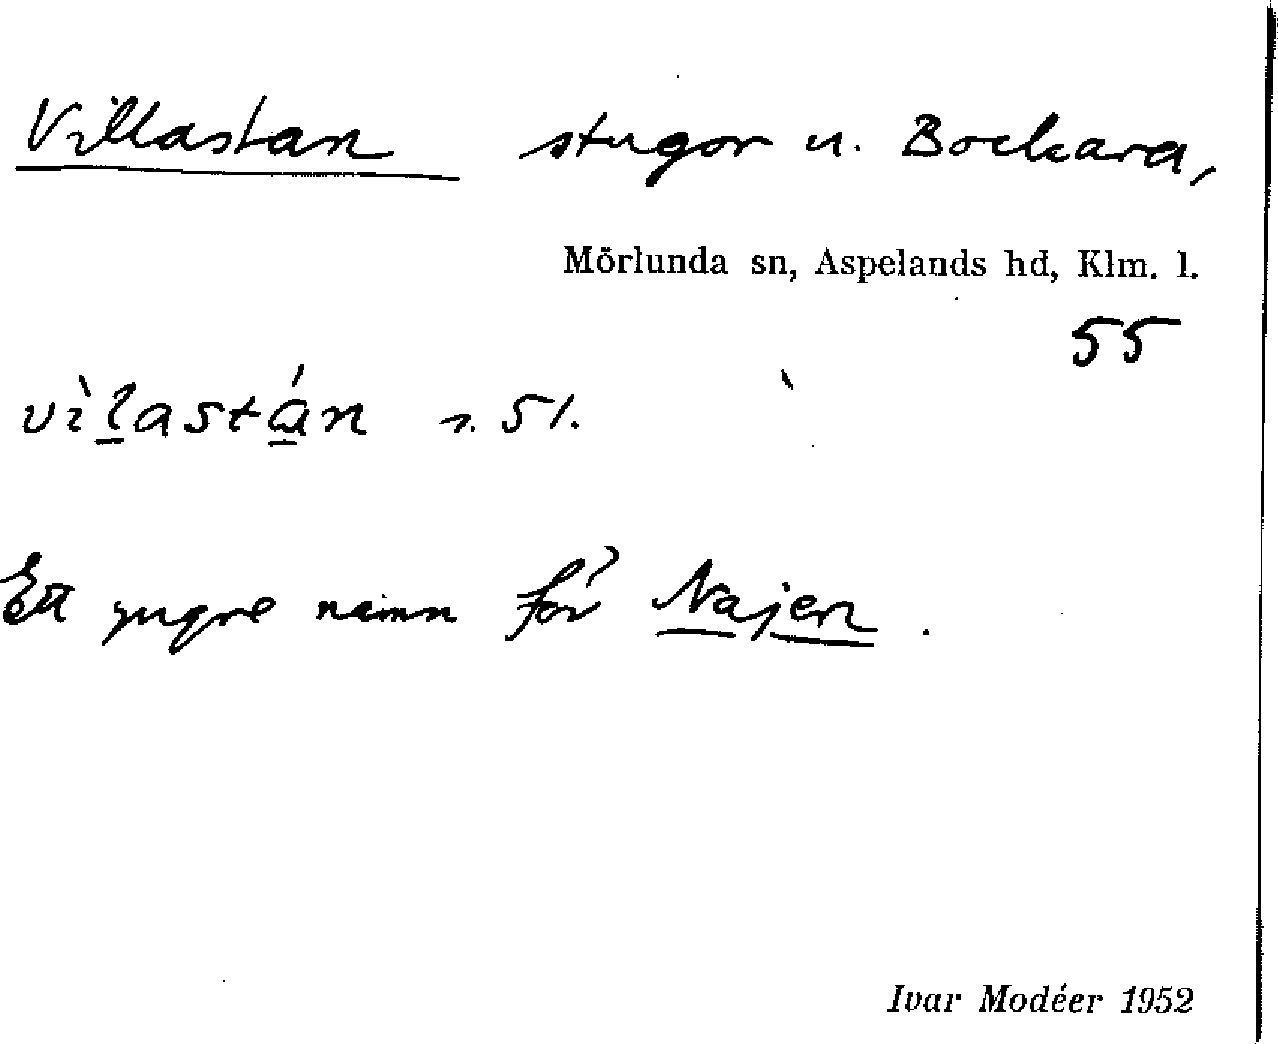 Villastan stugor u. Bockara,
Mörlunda sn, Aspelands hd, Klm. l.
55
vìl̲astá̲n s. 51.
Ett yngre namn för Najen.
Ivar Modéer 1952